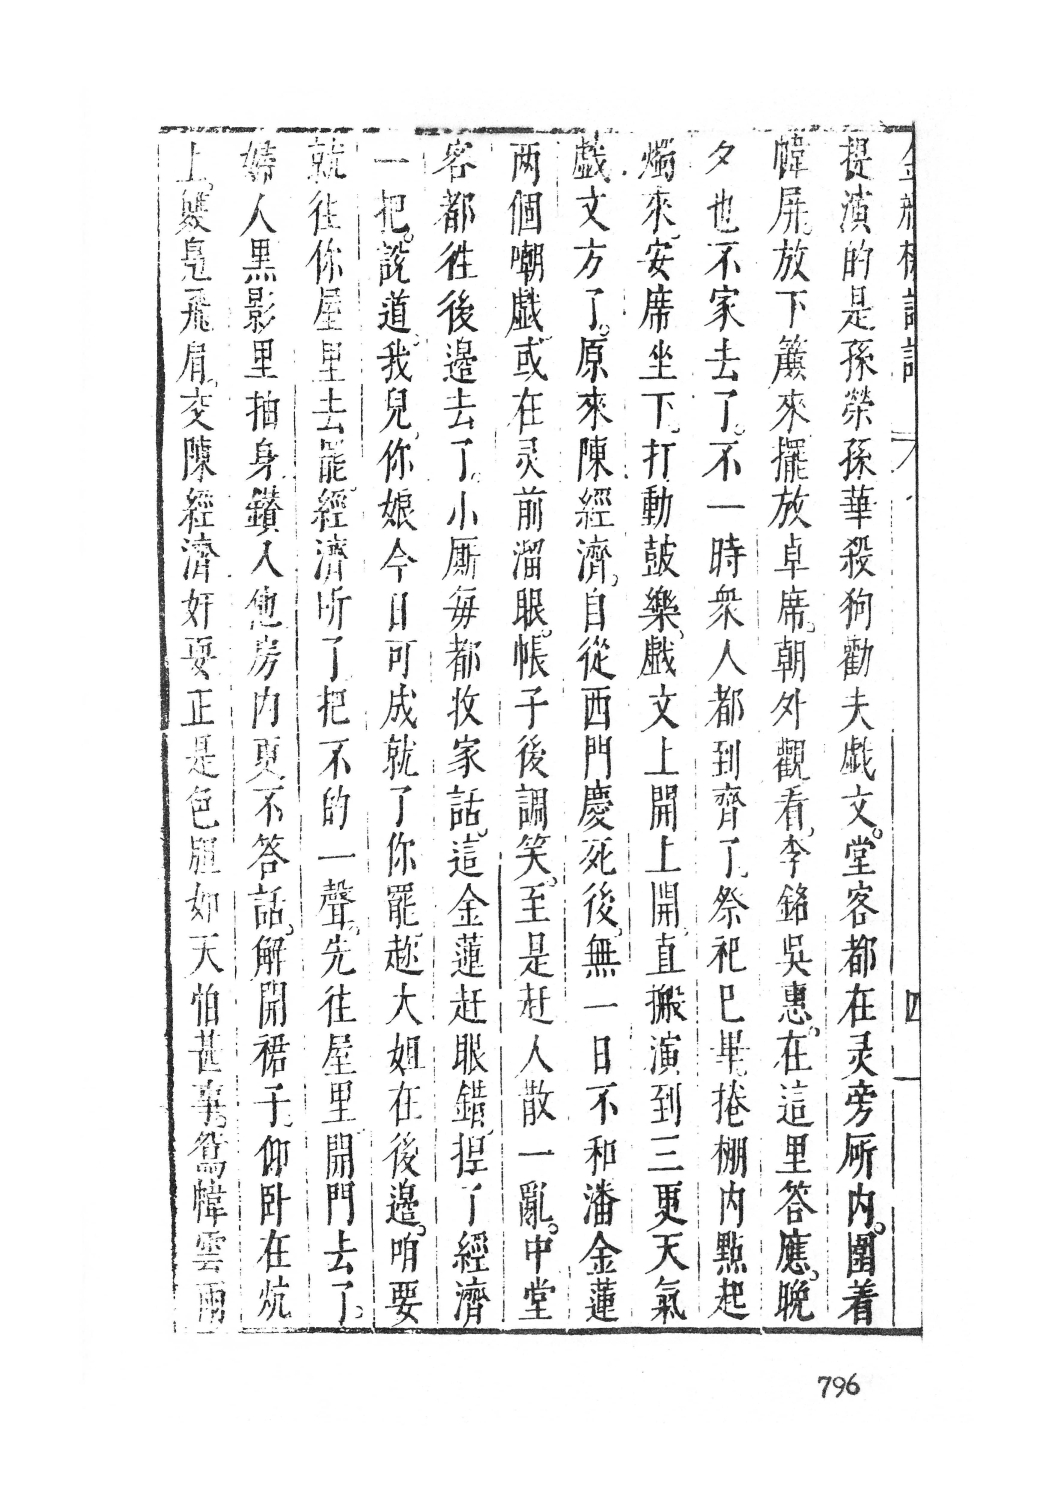 金瓶梅詞話 八 四
提演的是孫榮孫華殺狗勸夫戯文。堂客都在灵旁厛内。圍着
幃屏。放下簾來擺放卓席。朝外觀看。李銘吳惠。在這里答應。晚
夕也不家去了。不一時衆人都到齊了。祭祀巳畢。捲棚内點起
燭來。安席坐下。打動鼓樂。戯文上開上開。直搬演到三更天氣
戯文方了。原來陳經濟。自從西門慶死後。無一日不和潘金蓮
两個嘲戯。或在灵前溜眼。帳子後調笑。至是赶人散一亂。中堂
客都徃後邊去了。小厮每都收家活。這金蓮赶眼錯。揑了經濟
一把。說道。我兒。你娘今日可成就了你罷。趂大姐在後邊。咱要
就徃你屋里去罷。經濟听了把不的一聲。先徃屋里開門去了。
婦人黑影里抽身鑽入他房内更不答話。解開裙子。仰卧在炕
上。雙鳬飛肩。交陳經濟奸耍正是色胆如天怕甚事。鴛幃雲雨
796